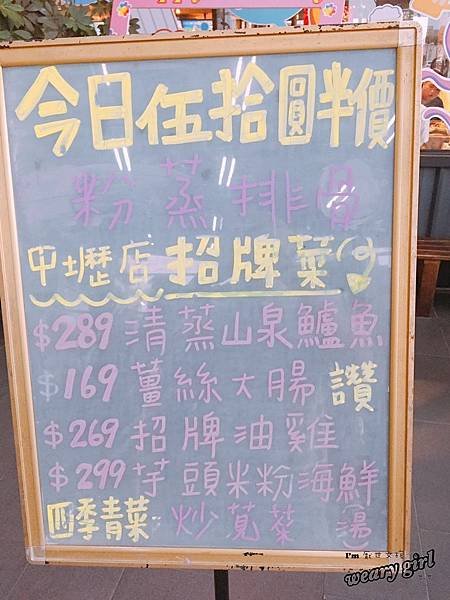 今日伍拾圓半價
粉蒸排骨
中壢店招牌菜
$289 清蒸山泉鱸魚
$169 薑絲大腸 讚
$269 招牌油雞
$299 芋頭米粉海鮮(湯)
四季青菜 炒莧菜
I'm
weary girl